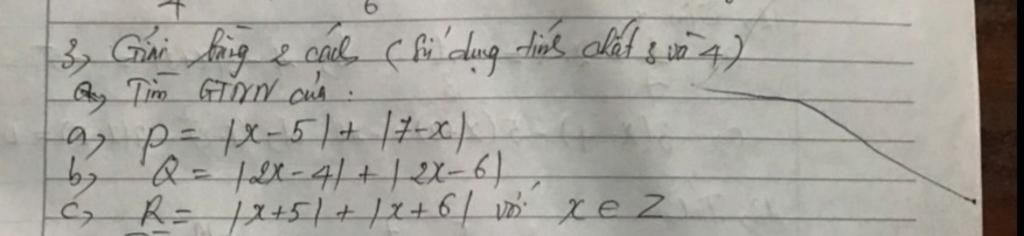 4 6
3, Giải bằng 2 cách (Sử dụng tính chất 3 và 4)
Tìm GTNN của:
a, P = |x-5| + |7-x|
b, Q = |2x-4| + |2x-6|
c, R = |x+5| + |x+6| với x ∈ Z